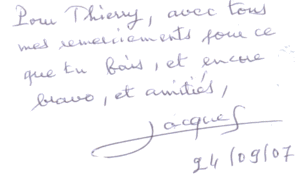 Pour Thierry, avec tous
mes remerciements pour ce
que tu fais, et encore
bravo, et amitiés,
Jacques
24/09/07